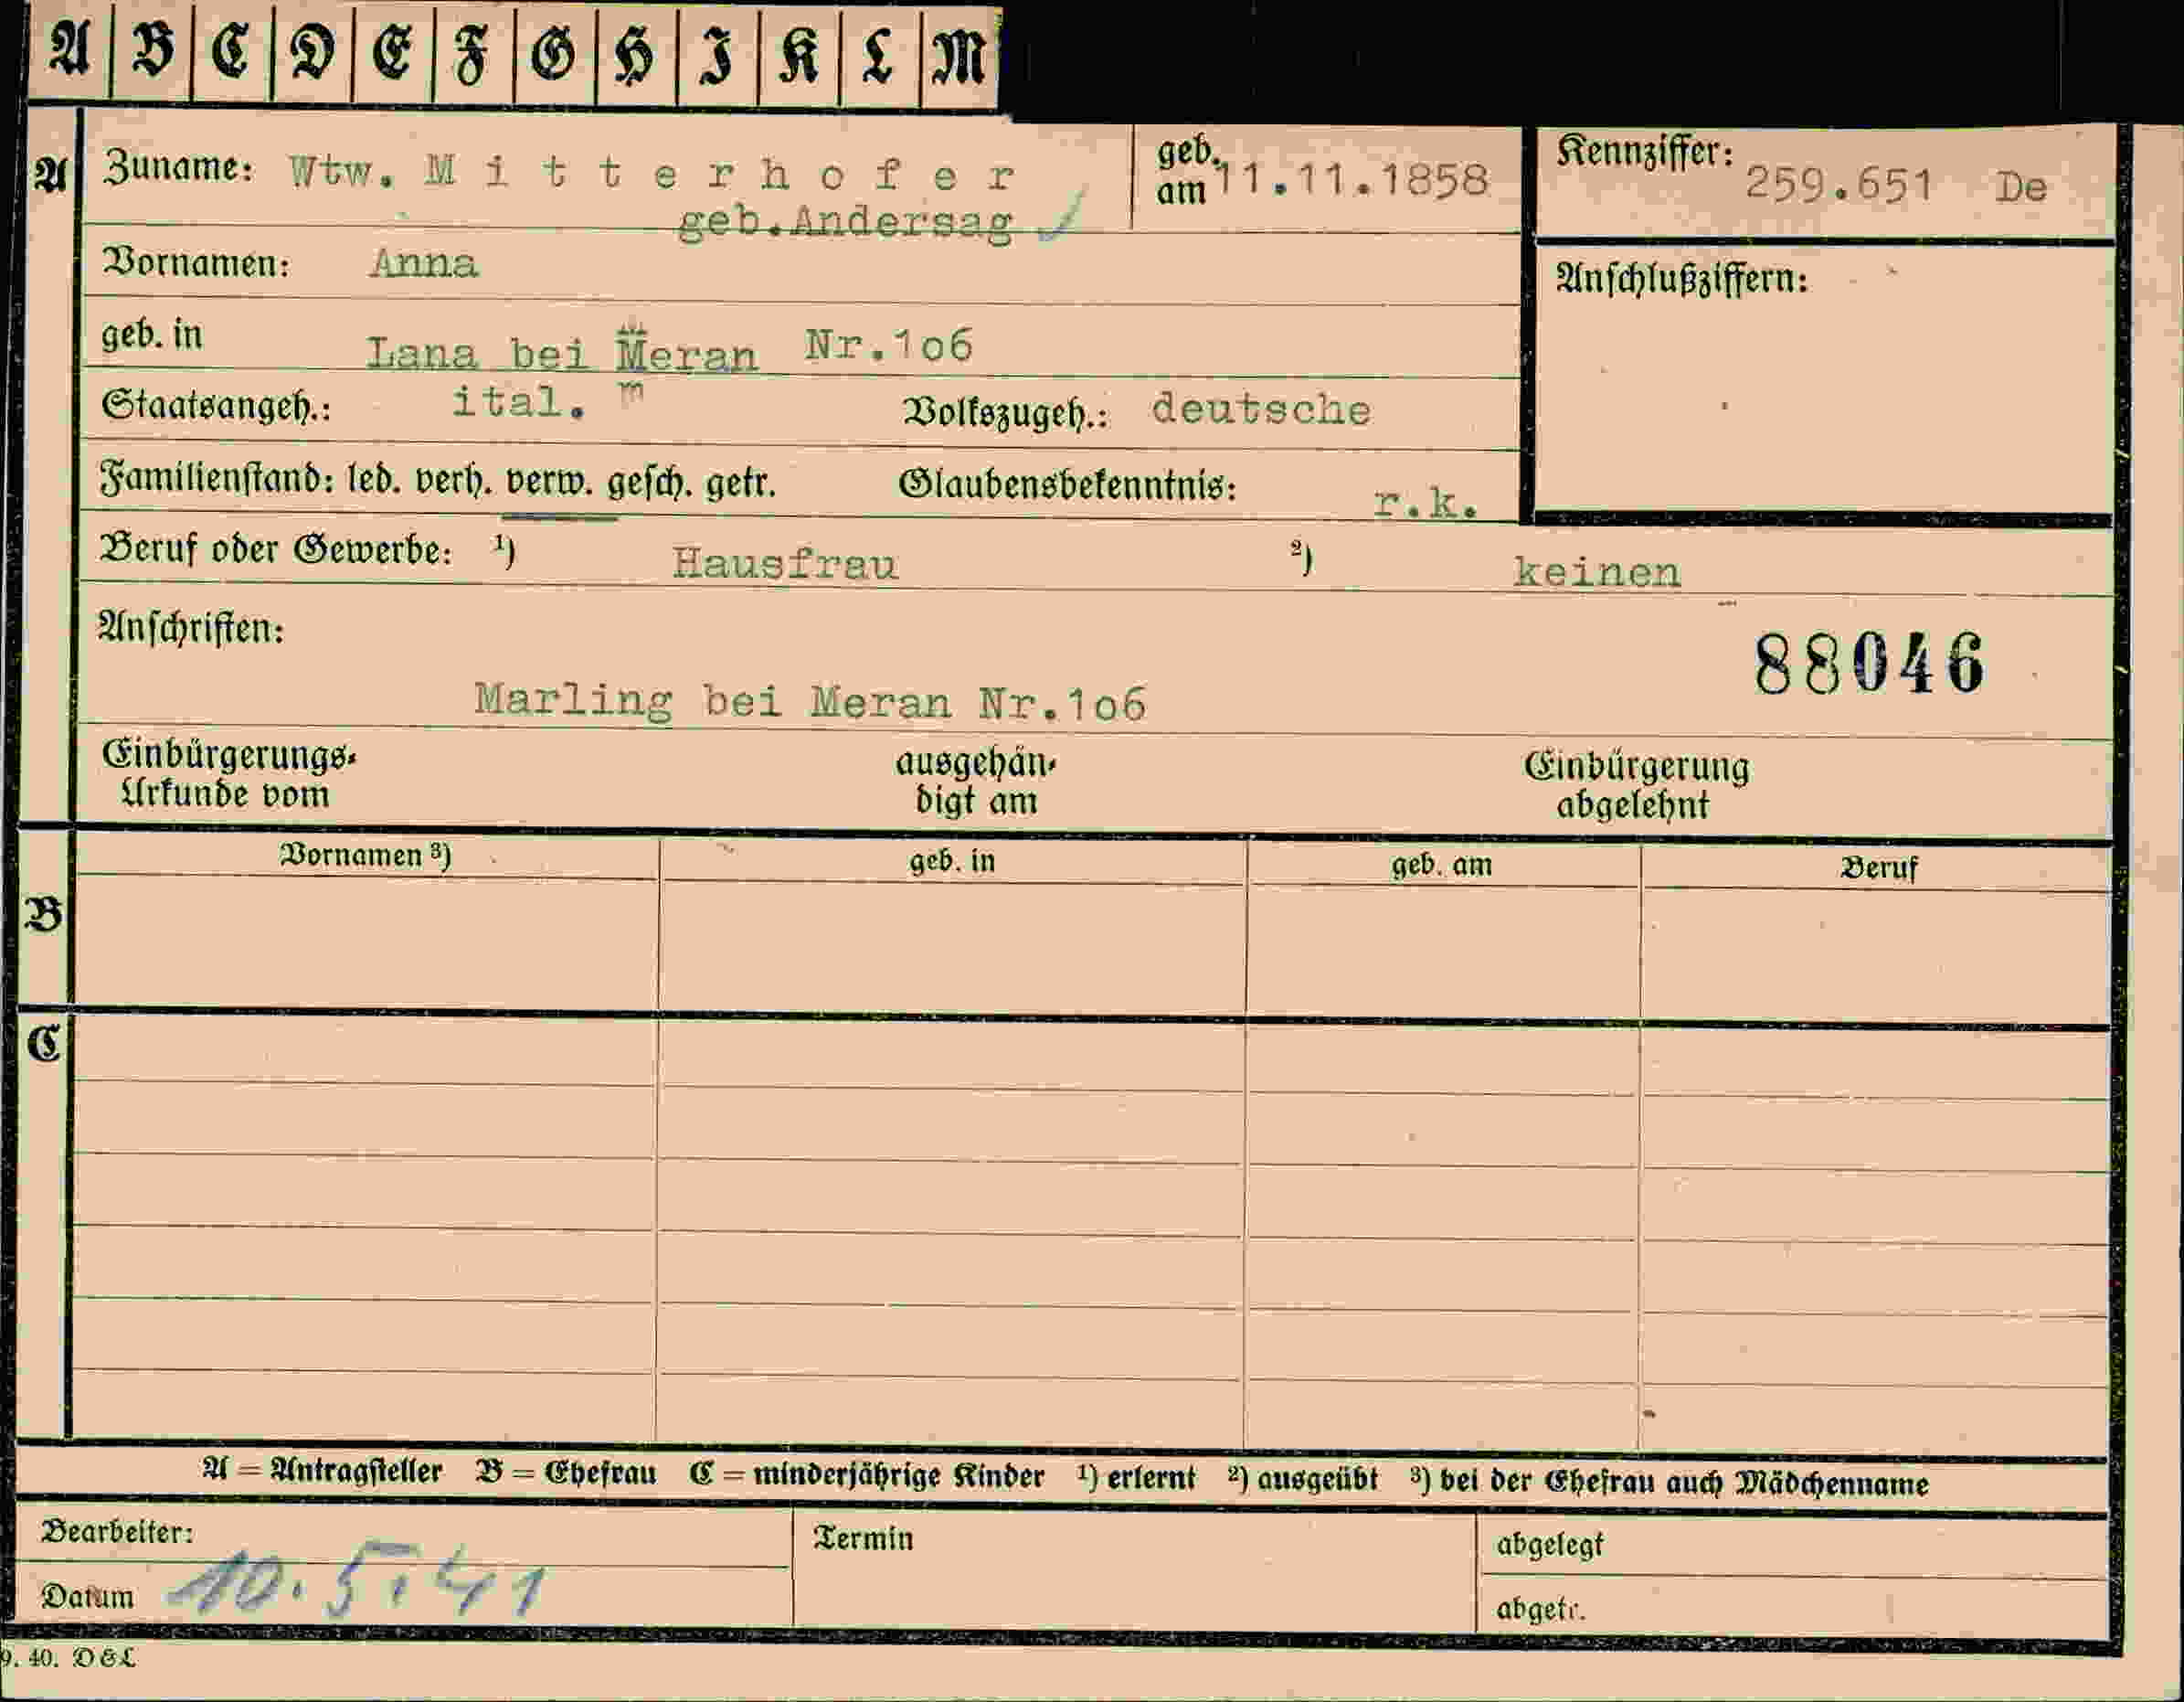 A B C D E F G H I K L M
A Zuname: Wtw. M i t t e r h o f e r geb. am 11.11.1858 Kennziffer: 259.651 De
geb.Andersag
Vornamen: Anna Anschlußziffern:
geb. in Lana bei Meran Nr.1o6
Staatsangeh.: ital. m Volkszugeh.: deutsche
Familienstand: led. verh. verw. gesch. getr. Glaubensbekenntnis: r.k.
Beruf oder Gewerbe: ¹) Hausfrau ²) keinen
Anschriften: 88046
Marling bei Meran Nr.1o6
Einbürgerungs- ausgehän- Einbürgerung
Urkunde vom digt am abgelehnt
Vornamen ³) geb. in geb. am Beruf
B
C
A = Antragsteller B = Ehefrau C = minderjährige Kinder ¹) erlernt ²) ausgeübt ³) bei der Ehefrau auch Mädchenname
Bearbeiter: Termin abgelegt
Datum 10.5.41 abgetr.
9. 40. D&L